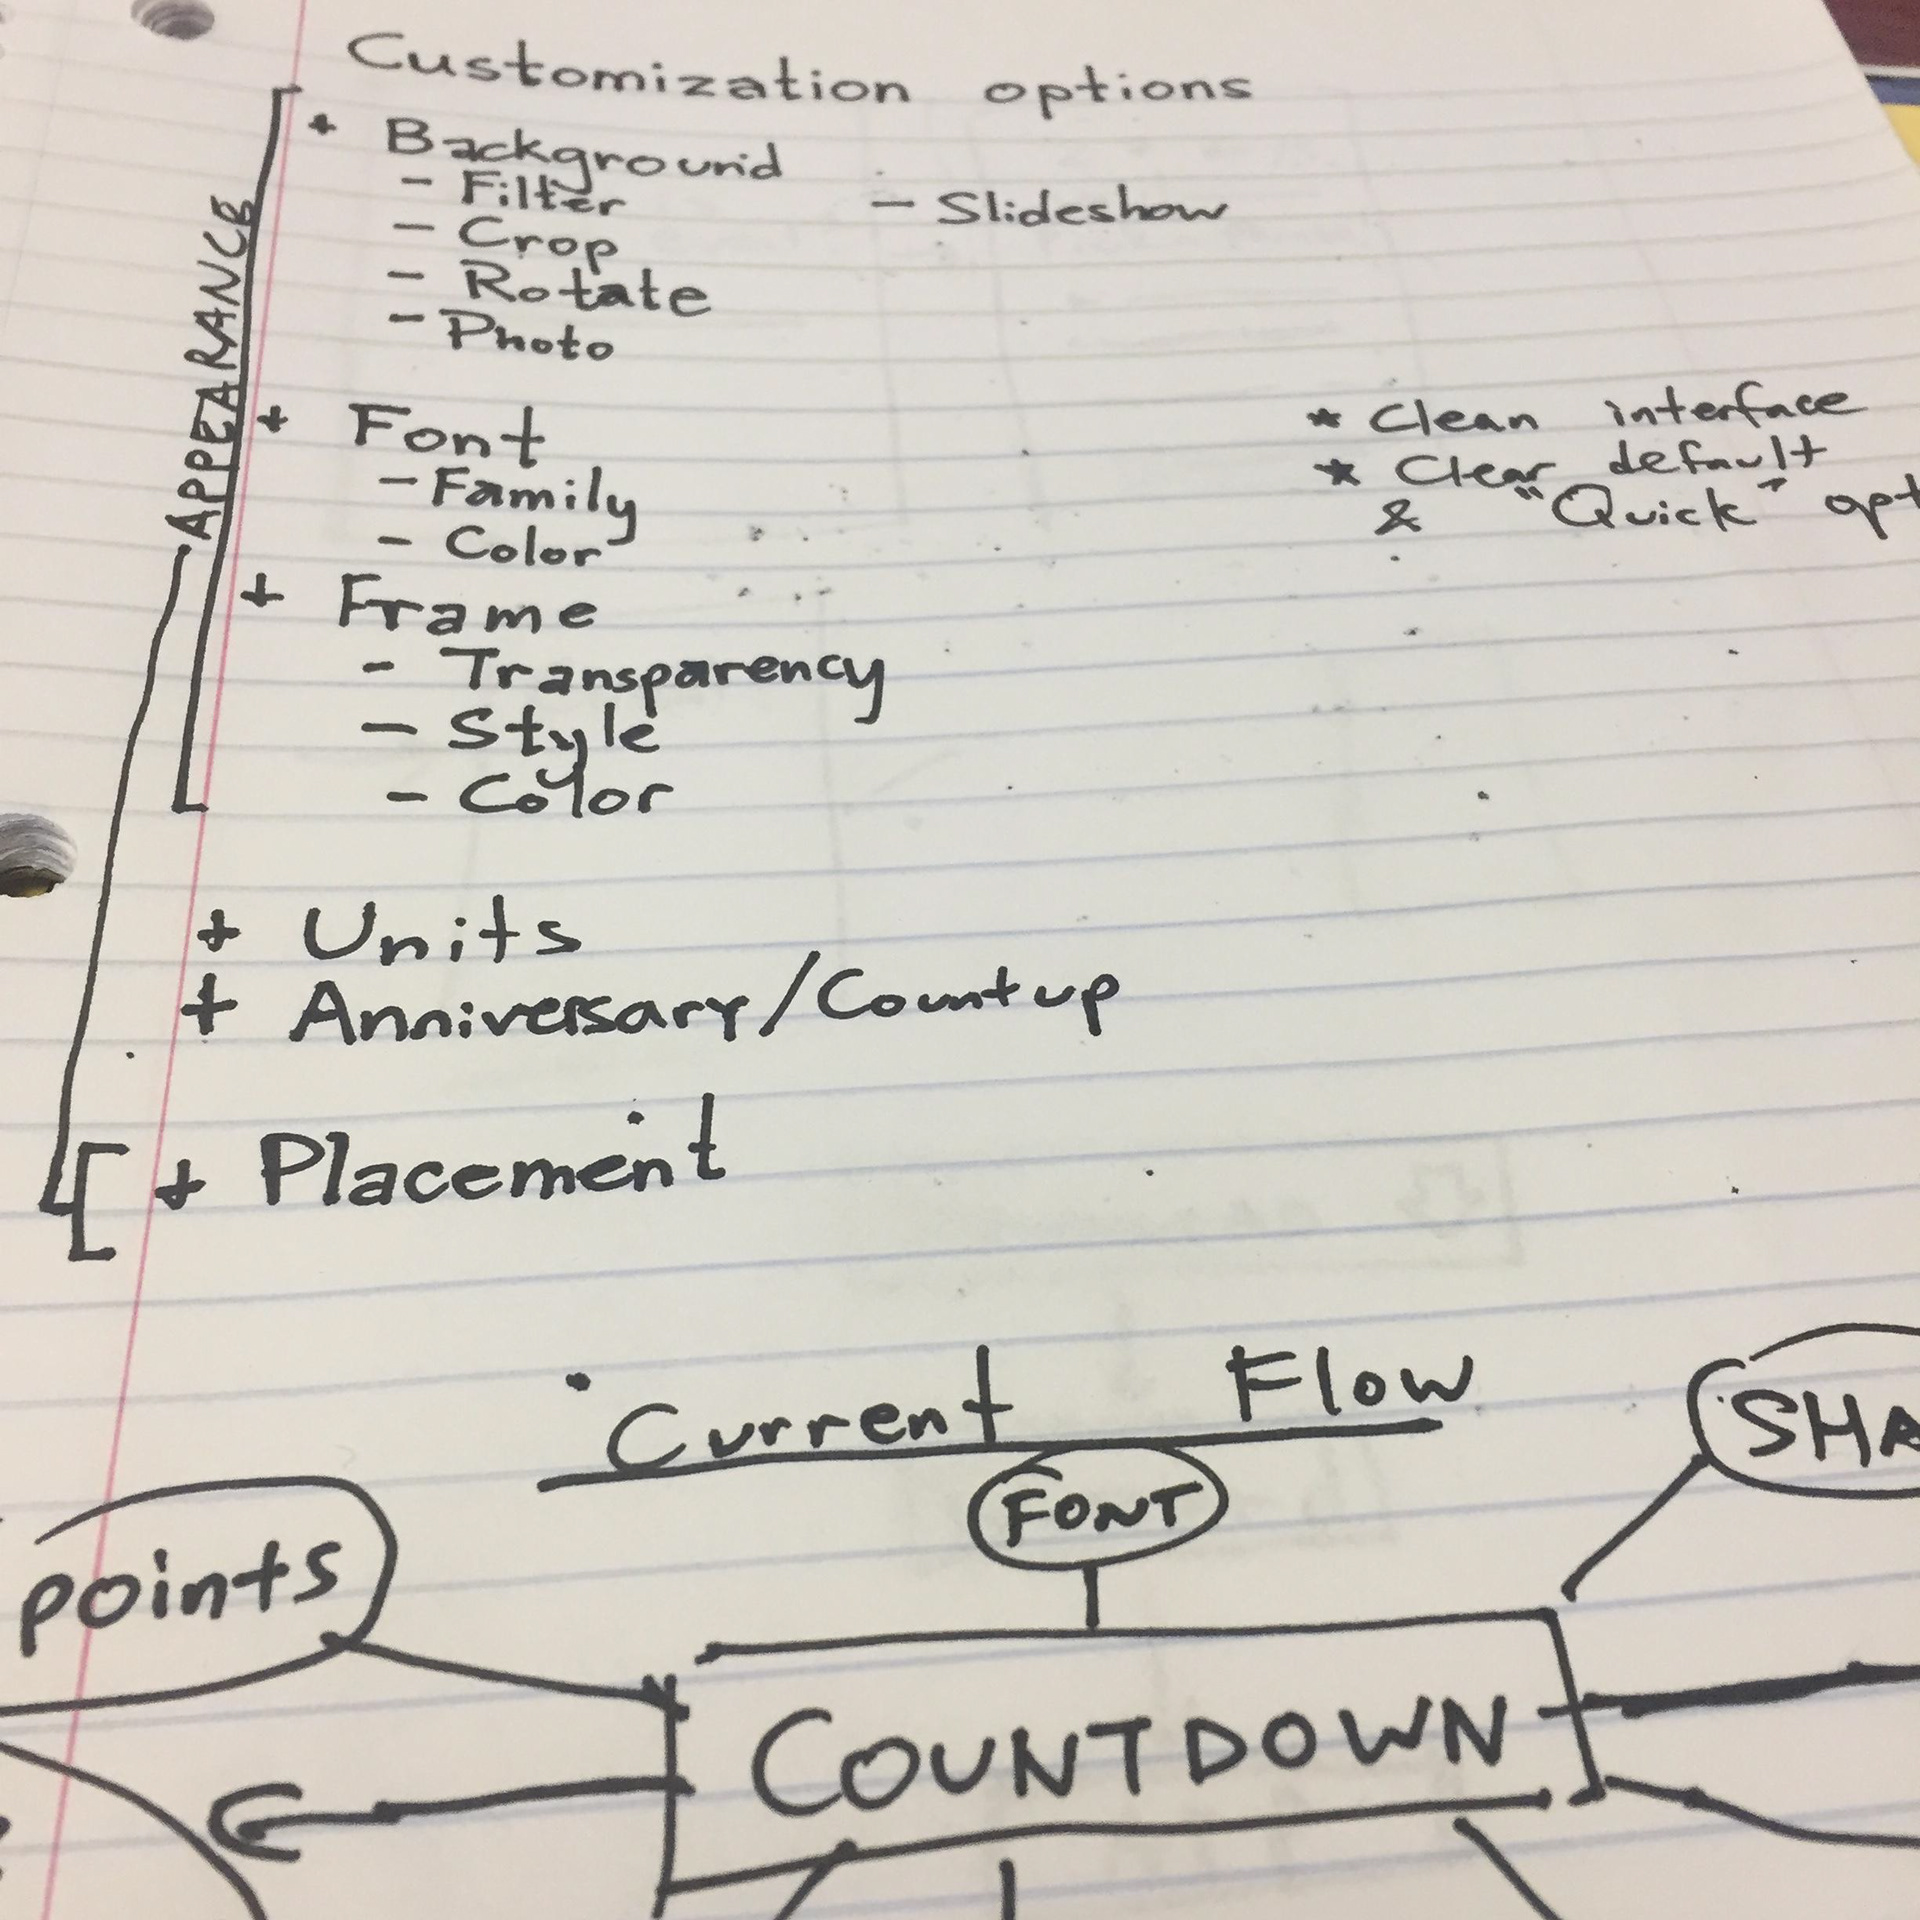 Customization options
APPEARANCE
+ Background
- Filter
- Slideshow
- Crop
- Rotate
- Photo
+ Font
- Family
- Color
* Clean interface
* Clear default
& "Quick" opt
+ Frame
- Transparency
- Style
- Color
+ Units
+ Anniversary/Countup
+ Placement
Current Flow
SHA
FONT
points
COUNTDOWN